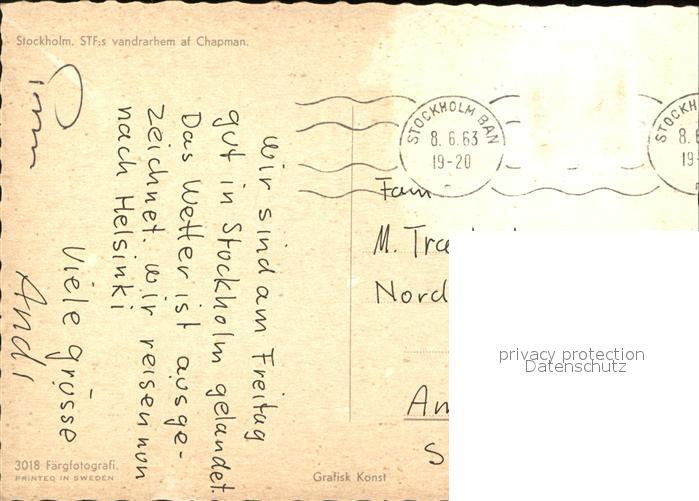 Stockholm. STF:s vandrarhem af Chapman.
STOCKHOLM BAN
8.6.63
19-20
STOCKH
8.6
19-
Wir sind am Freitag
gut in Stockholm gelandet.
Das Wetter ist ausge-
zeichnet. Wir reisen nun
nach Helsinki
Viele grüsse
Andi
Fam
M.
Nord
An
S
privacy protection
Datenschutz
3018 Färgfotografi.
PRINTED IN SWEDEN
Grafisk Konst